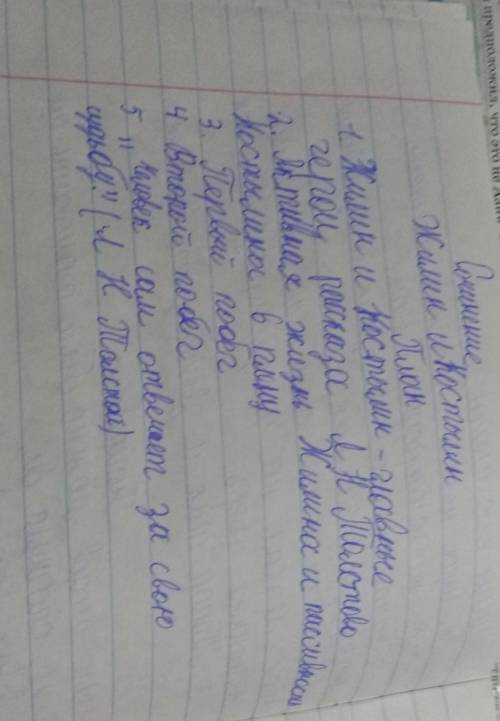 Сочинение
Жилин и Костылин
План
1. Жилин и Костылин - главные
герои рассказа Л Н Толстого
2. Активная жизнь Жилина и пассивность
Костылина в плену
3. Первый побег
4 Второй побег
5 „ Человек сам отвечает за свою
судьбу." ( Л Н Толстой)
предположил, что это не